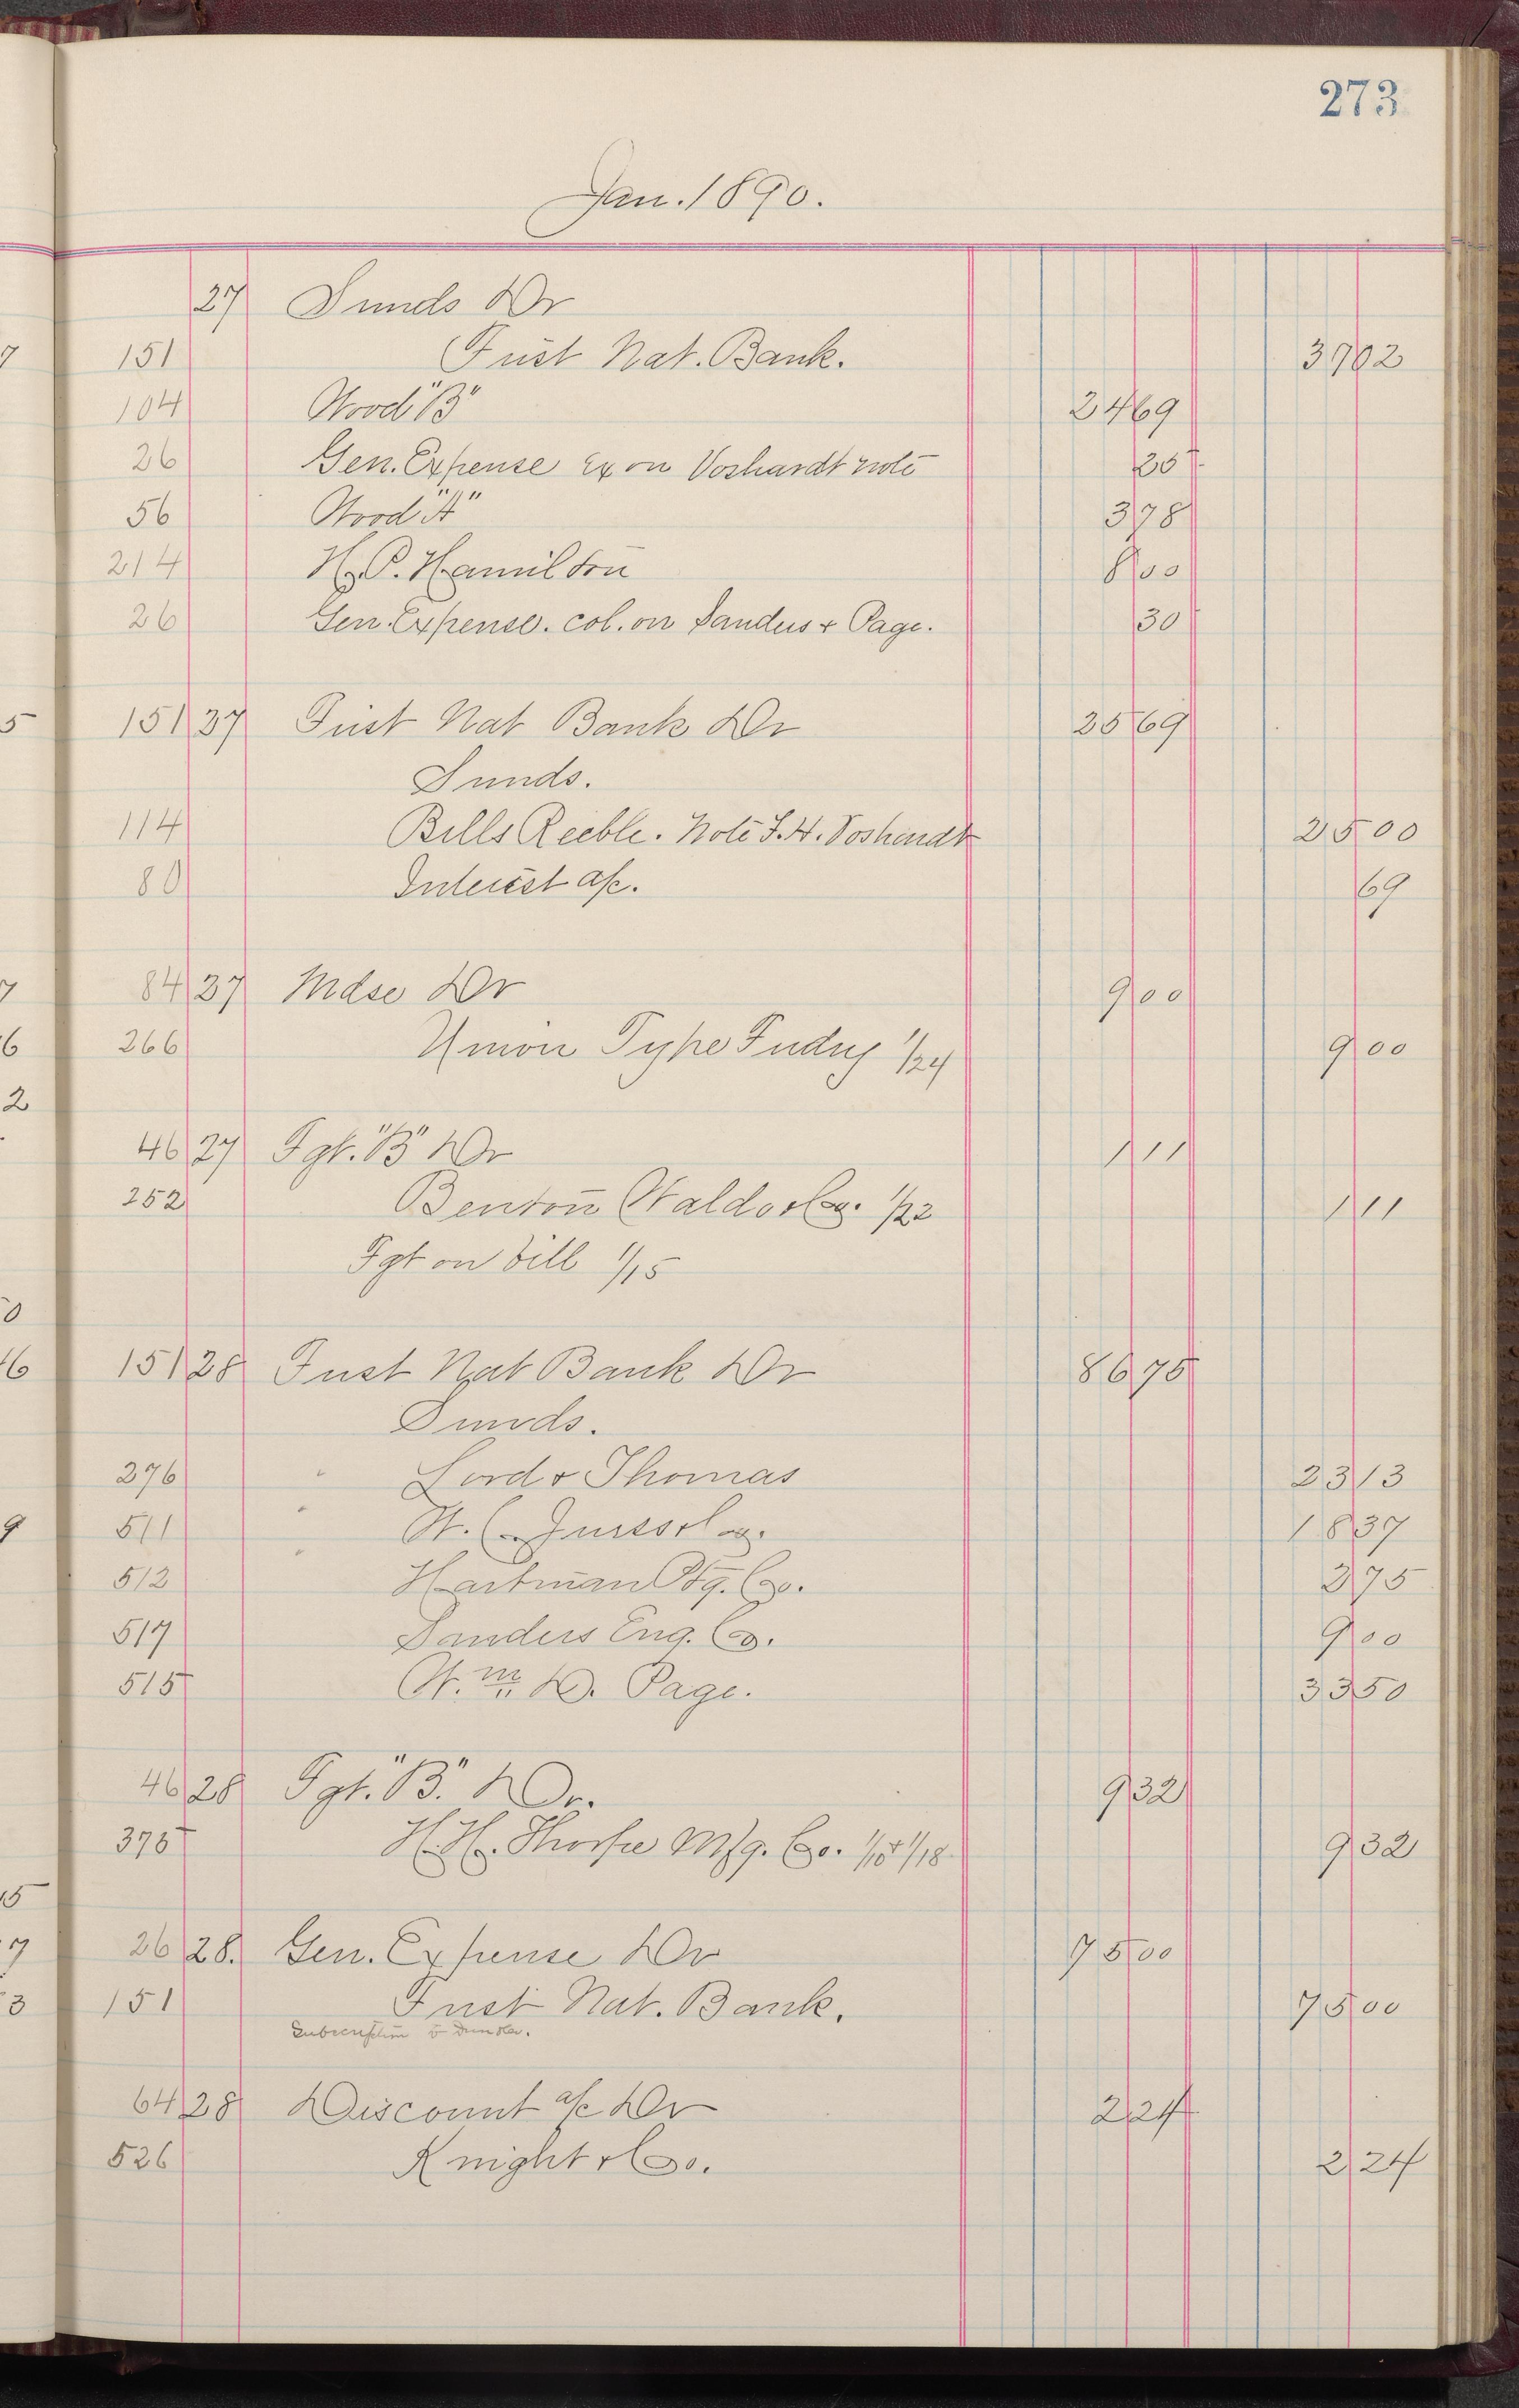 273
Jan. 1890.
27 Sunds Dr
151 First Nat. Bank. 37 02
104 Wood "B" 24 69
26 Gen. Expense Ex on Voshardt note 25
56 Wood "A" 3 78
214 H. P. Hamilton 8 00
26 Gen. Expense. col. on Sanders & Page. 30
151 27 First Nat Bank Dr 25 69
Sunds.
114 Bills Recble. Note F. H. Voshardt 25 00
80 Interest a/c. 69
84 27 Mdse Dr 9 00
266 Union Type Fndry 1/24 9 00
46 27 Fgt. "B" Dr 1 11
252 Benton Waldo & Co. 1/22 1 11
Fgt on bill 1/15
151 28 First Nat Bank Dr 86 75
Sunds.
276 Lord & Thomas 23 13
511 18 37
512 Hartman Mfg. Co. 2 75
517 Sanders Eng. Co. 9 00
515 Wm. D. Page. 33 50
46 28 Fgt. "B". Dr. 9 32
375 H. H. Thorpe Mfg. Co. 1/15 1/18 9 32
26 28. Gen. Expense Dr 75 00
151 First Nat. Bank. 75 00
Subscription
64 28 Discount a/c Dr 2 24
526 Knight & Co. 2 24
7
5
7
6
2
0
46
9
15
7
3